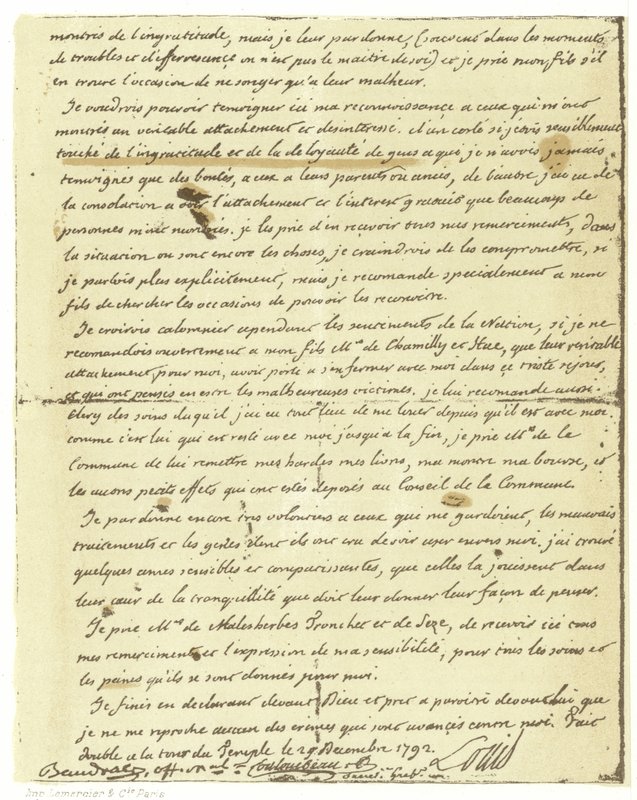 montrés de l'ingratitude, mais je leur pardonne, (souvent dans les moments
de troubles et d'effervescence on n'est pas le maitre de soi) et je prie mon fils s'il
en trouve l'occasion de ne songer qu'a leur malheur.
Je voudrois pouvoir temoigner ici ma reconnoissance a ceux qui m'ont
montrés un veritable attachement et desinteressé. d'un coté si j'etois sensiblement
touché de l'ingratitude et de la deloyauté de gens a qui je n'avois jamais
temoignés que des bontés, a eux a leurs parents ou amis, de l'autre j'ai eu de
la consolation a voir l'attachement et l'interest gratuit que beaucoup de
personnes m'ont montrées. je les prie d'en recevoir tous mes remerciments, dans
la situation ou sont encore les choses, je craindrois de les compromettre, si
je parlois plus explicitement, mais je recomande specialement a mon
fils de chercher les occasions de pouvoir les reconoitre.
Je croirois calomnier cependant les sentiments de la Nation, si je ne
recomandois ouvertement a mon fils Mrs de Chamilly et Hue, que leur veritable
attachement pour moi, avoit porté a s'enfermer avec moi dans ce triste sejour,
et qui ont pensés en estre les malheureuses victimes. je lui recomande aussi
Clery des soins duquel j'ai eu tout lieu de me louer depuis qu'il est avec moi.
comme c'est lui qui est resté avec moi jusqu'a la fin, je prie Mrs de la
Commune de lui remettre mes hardes mes livres, ma montre ma bourse, et
les autres petits effets qui ont estés deposés au Conseil de la Commune
Je pardonne encore tres volontiers a ceux qui me gardoient, les mauvais
traitements et les gesnes dont ils ont cru devoir user envers moi. j'ai trouvé
quelques ames sensibles et compatissantes, que celles la jouissent dans
leur cœur de la tranquillité que doit leur donner leur façon de penser.
Je prie Mrs de Malesherbes Tronchet et de Seze, de recevoir ici tous
mes remerciments et l'expression de ma sensibilité, pour tous les soins et
les peines qu'ils se sont donnés pour moi.
Je finis en declarant devant Dieu et pret a paroitre devant lui que
je ne me reproche aucun des crimes qui sont avancés contre moi. Fait
double a la tour du Temple le 25 Decembre 1792.
Louis
Baudrais, off. m al
Imp. Lemercier & Cie Paris